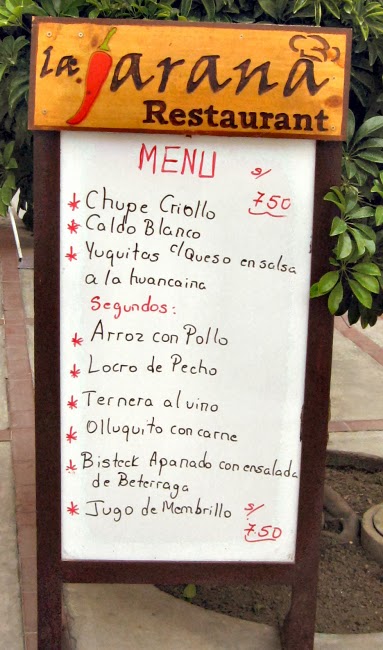 La Jarana
Restaurant
MENU s/ 750
* Chupe Criollo
* Caldo Blanco
* Yuquitas c/Queso en salsa
a la huancaina
Segundos:
* Arroz con Pollo
* Locro de Pecho
* Ternera al vino
* Olluquito con carne
* Bisteck Apanado con ensalada
de Beterraga
* Jugo de Membrillo s/
750